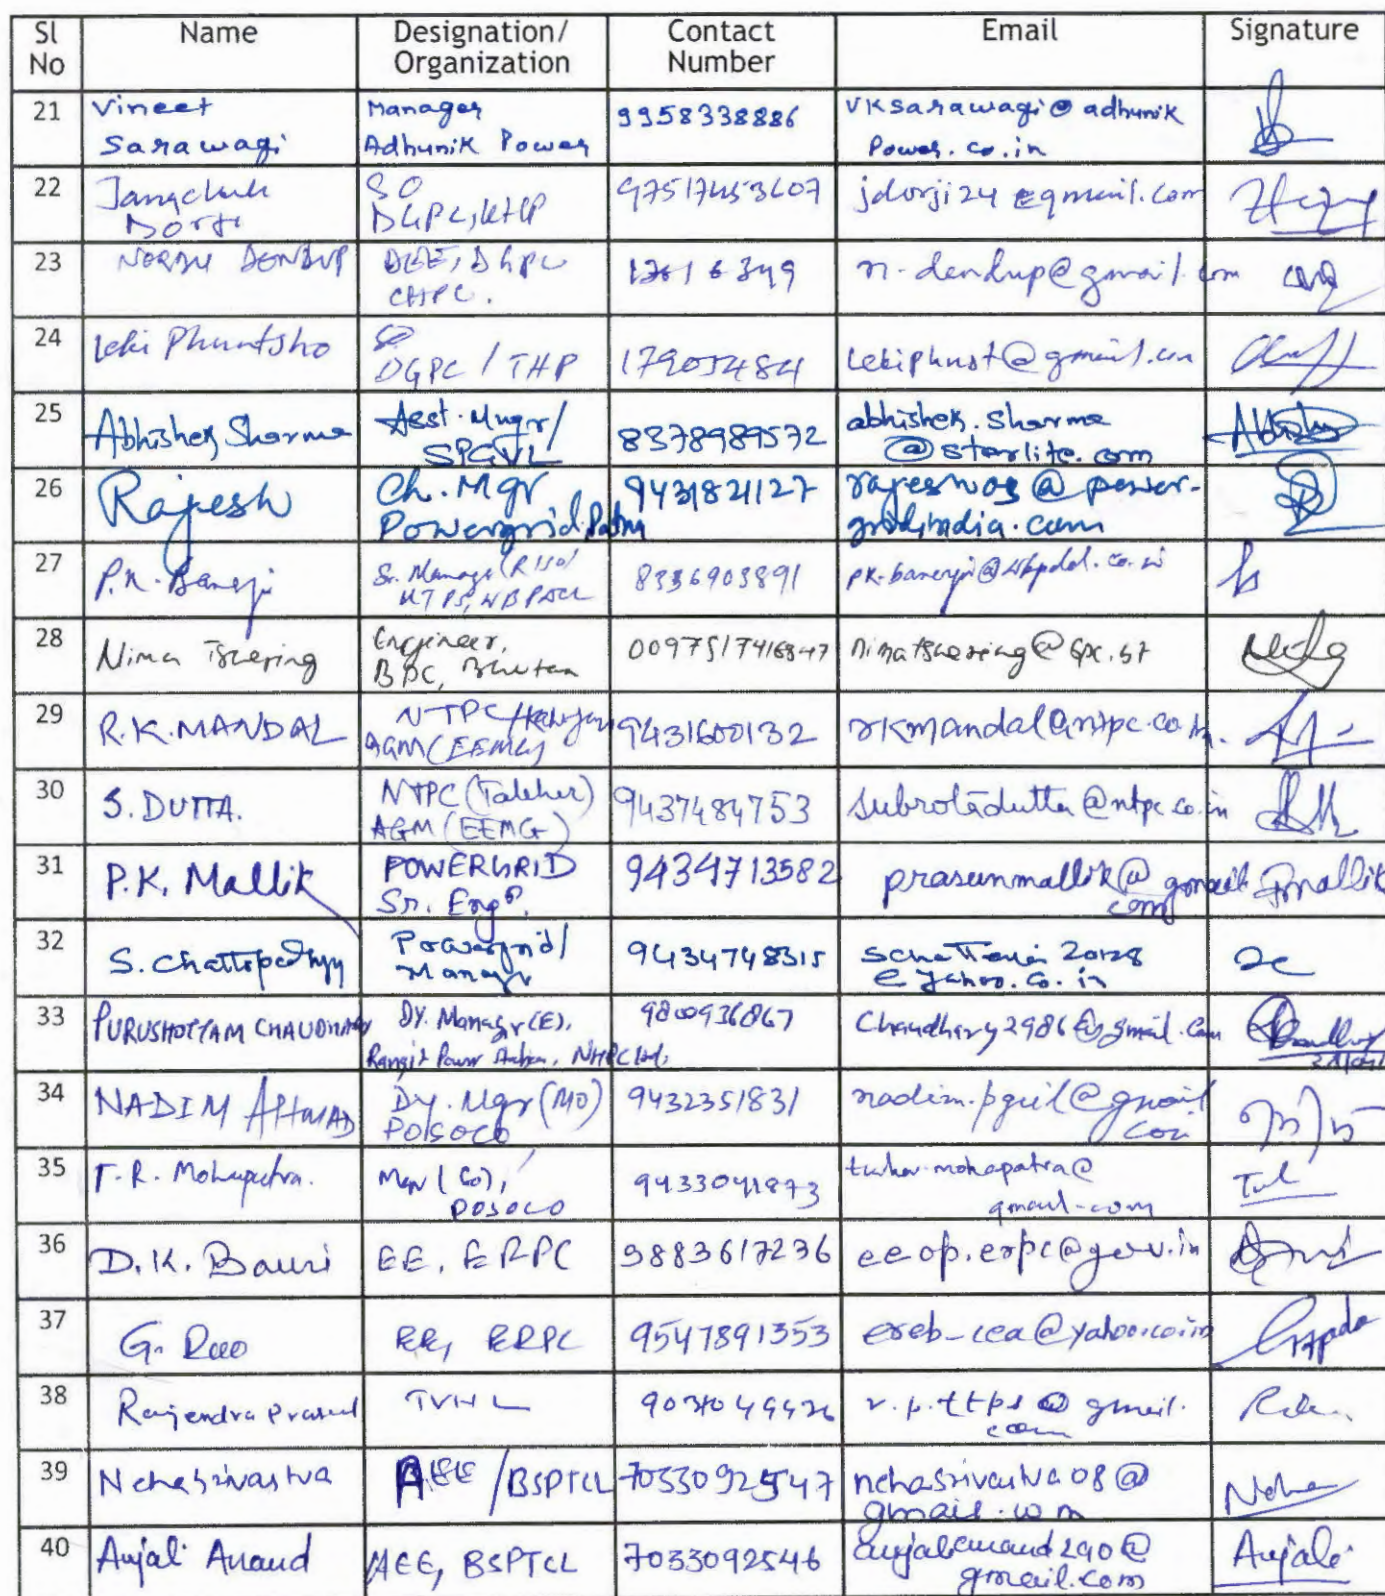 Sl No Name Designation/ Organization Contact Number Email Signature
21 Vineet Sarawagi Manager Adhunik Power 9958338886 vksarawagi@adhunik Power.co.in
22 Jangchuk Dorji SO DGPC, KHP 97517453607 jdorji24@gmail.com
23 NORBU DENDUP DGPC CHPC. n-dendup@gmail.com
24 Leki Phuntsho DGPC / THP lekiphunt@gmail.com
25 Abhishek Sharma Asst. Mngr/ SPGVL 8378989572 abhishek.sharma @sterlite.com
26 Rajesh Ch. Mgr Powergrid Patna 9431821127 @power- gridindia.com
27 P.K. Banerji Sr. Manager 8336903891 pk-banerji@wbpdcl.co.in
28 Nima Tshering Engineer, BPC, Bhutan nimatshering@bpc.bt
29 R.K. MANDAL NTPC/Kahalgaon AGM(EEMG) 9431600132 rkmandal@ntpc.co.in.
30 S. DUTTA. NTPC (Talcher) AGM (EEMG) 9437484753 subrotadutta@ntpc.co.in
31 P.K. Mallik POWERGRID Sr. Engr. 9434713582 prasunmallik@gmail.com Pmallik
32 S. Chattopadhyay Powergrid/ Manager 9434748315 @yahoo.co.in
33 PURUSHOTTAM CHAUDHARY Dy. Manager(E), Rangit Power Station, NHPC Ltd. 9800936867 Chaudhary2986@gmail.com
34 NADIM AHMAD Dy. Mgr (MO) POSOCO 9432351831 nadim.pgcil@gmail com
35 T.R. Mohapatra. POSOCO 9433041873 tushar.mohapatra@ gmail.com
36 D.K. Bauri EE, ERPC 9883617236 eeop.erpc@gov.in
37 G. Rao EE, ERPC 9547891353 ereb_cea@yahoo.co.in
38 Rajendra Prasad TVNL r.p.ttps@gmail. com
39 Neha Srivastva AEE /BSPTCL nehasrivastva08@ gmail.com Neha
40 Anjali Anand AEE, BSPTCL 7033092546 anjalianand290@ gmail.com Anjali